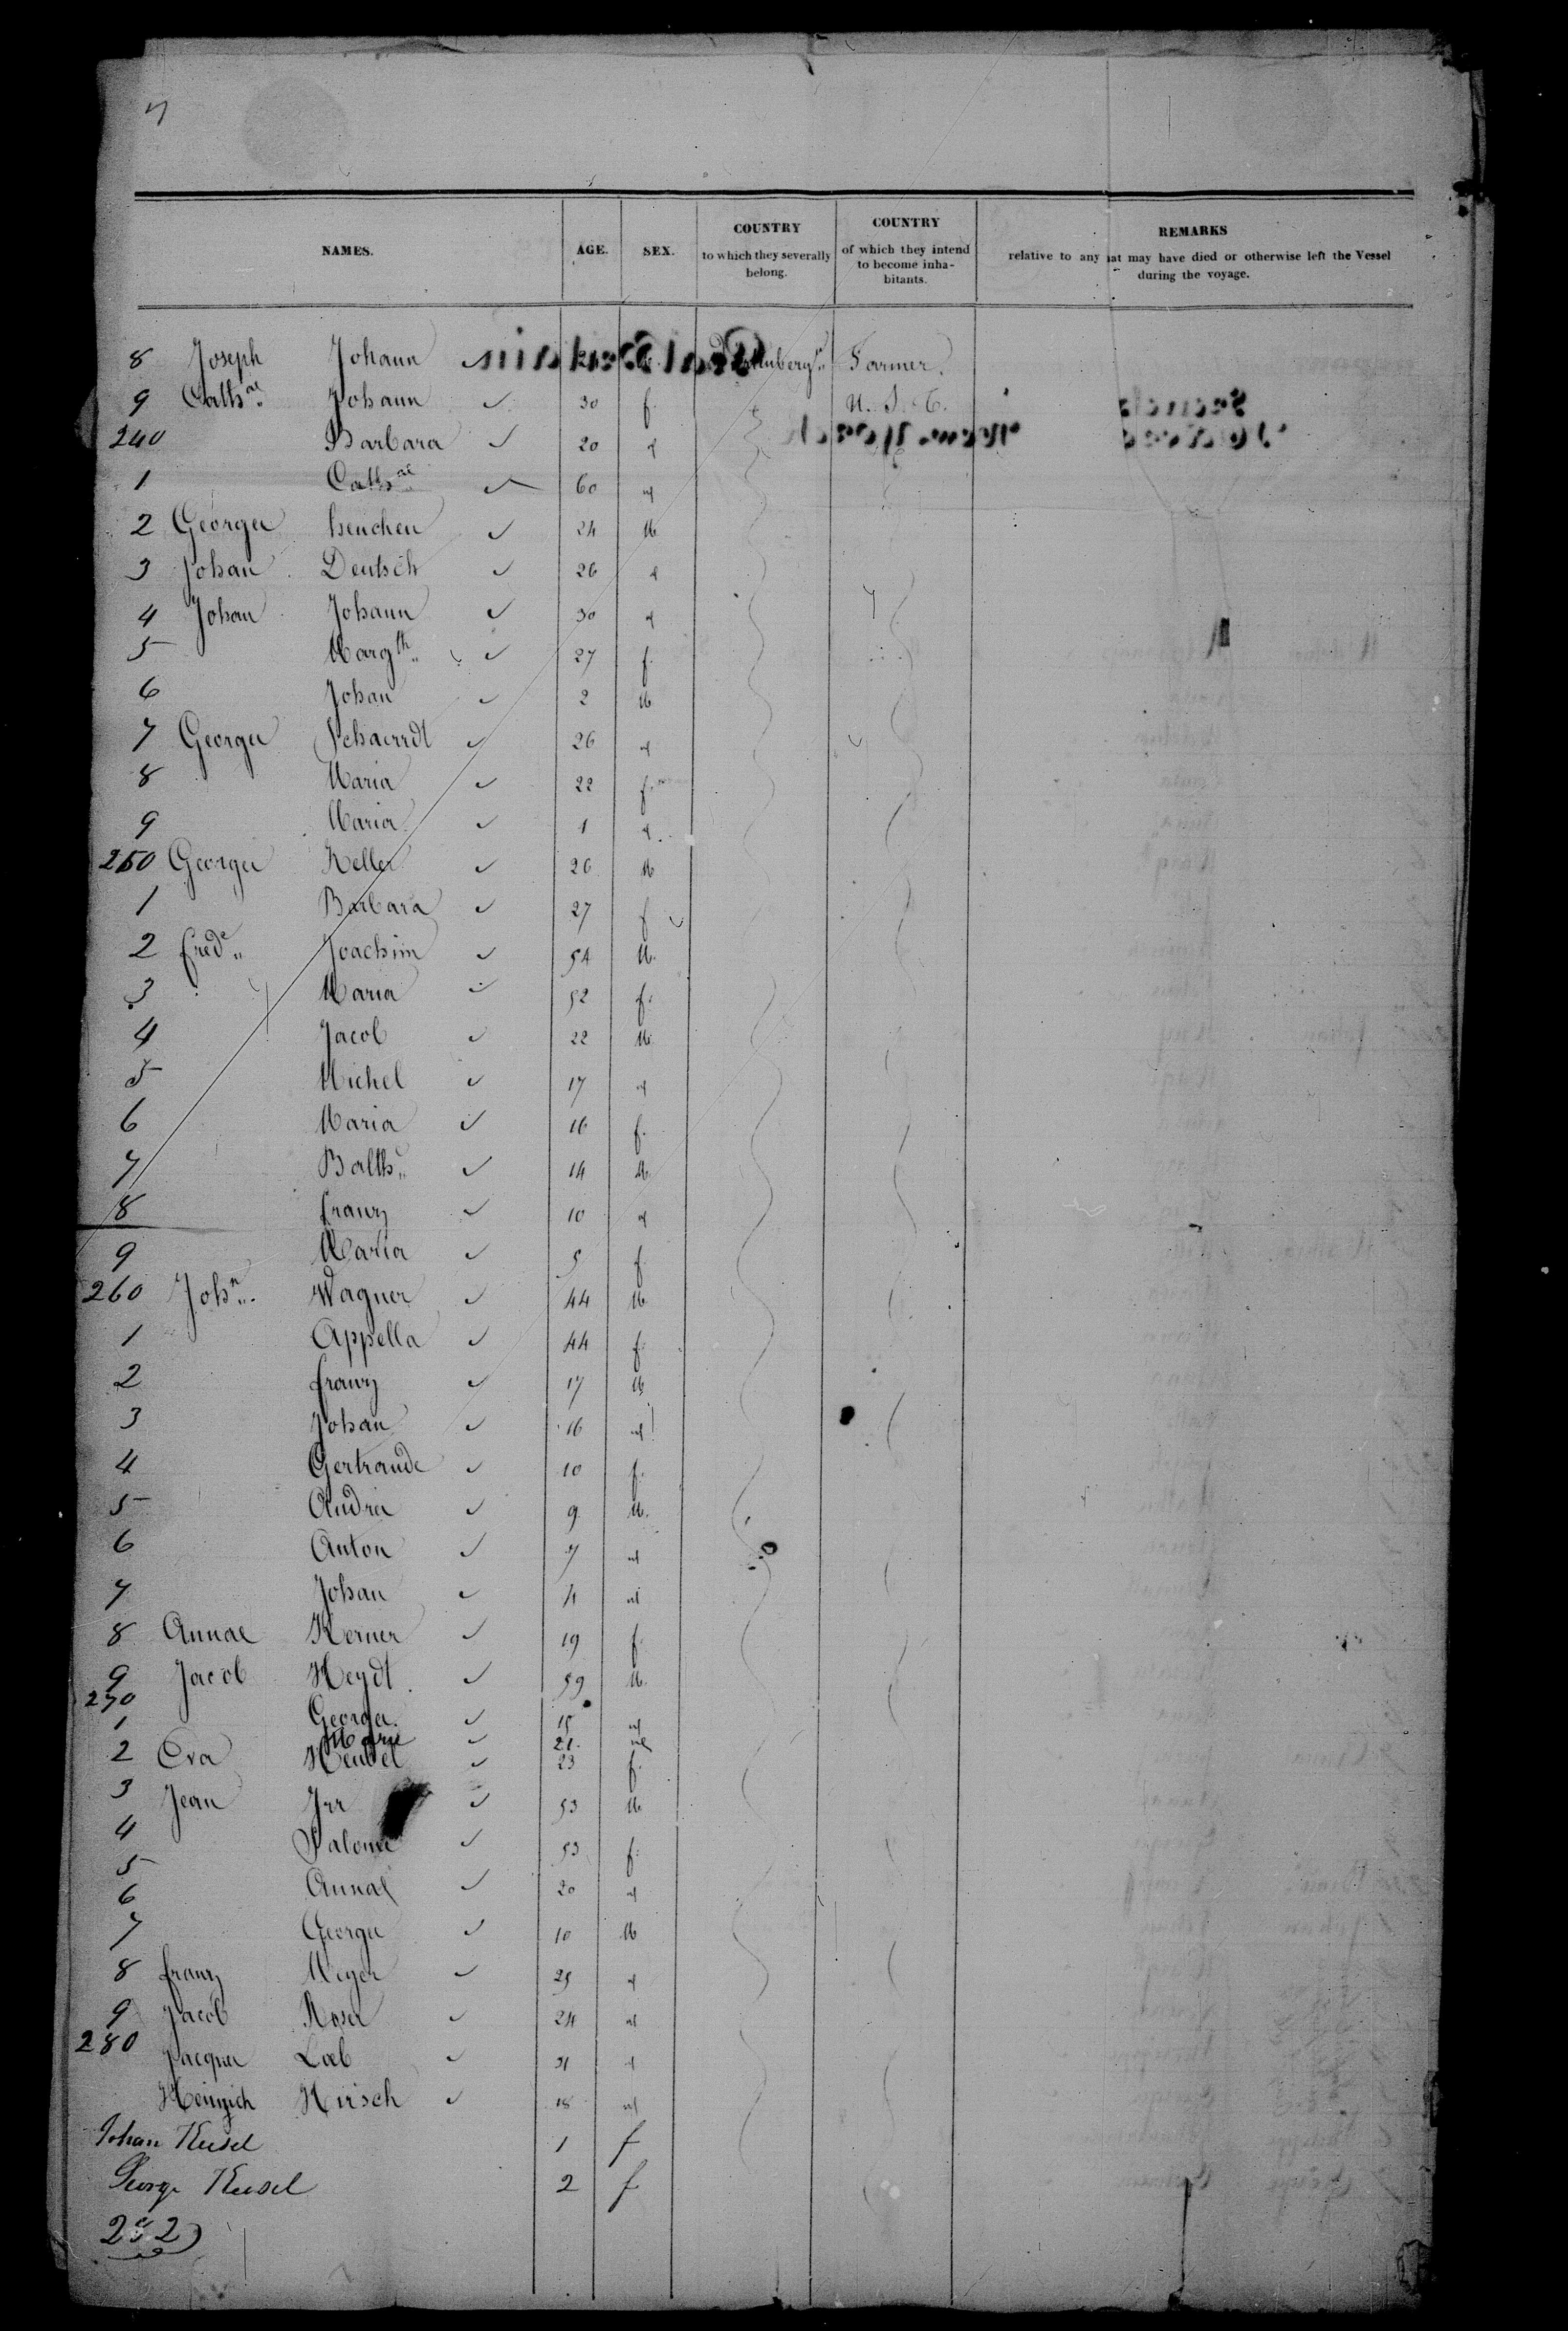 7
NAMES. AGE. SEX. COUNTRY to which they severally belong. COUNTRY of which they intend to become inhabitants. REMARKS relative to any that may have died or otherwise left the Vessel during the voyage.
8 Joseph Johann Farmer.
9 Cathne Johann 30 f. U. S.
240 Barbara 20 "
1 Cathne 60 "
2 George henchen 24 M
3 Johan Deutsch 26 "
4 Johan Johann 30 "
5 Margth 27 f.
6 Johan 2 M
7 George 26 "
8 Maria 22 f.
9 Maria 1 "
250 George Keller 26 M
1 Barbara 27 f
2 fredc Joachim 54 M.
3 Maria 52 f.
4 Jacob 22 M
5 Michel 17 "
6 Maria 16 f.
7 Balth 14 M
8 franz 10 "
9 Maria 5 f
260 John Wagner 44 M
1 Appella 44 f.
2 franz 17 M
3 Johan 16 "
4 Gertraude 10 f.
5 Andrea 9 M.
6 Anton 7 "
7 Johan 4 "
8 Annae Kerner 19 f.
9 Jacob Heydt 59 M.
270 George 15 "
1 Marie 21 "
2 Eva 23 f.
3 Jean Irr 53 M
4 Salome 53 f.
5 Annae 20 "
6
7 George 10 M
8 franz Meyer 25 "
9 Jacob Roser 24 "
280 Jacques Loeb 31 "
Heinrich Hirsch 18 "
Johan Keisel 1 f
George Keisel 2 f
282